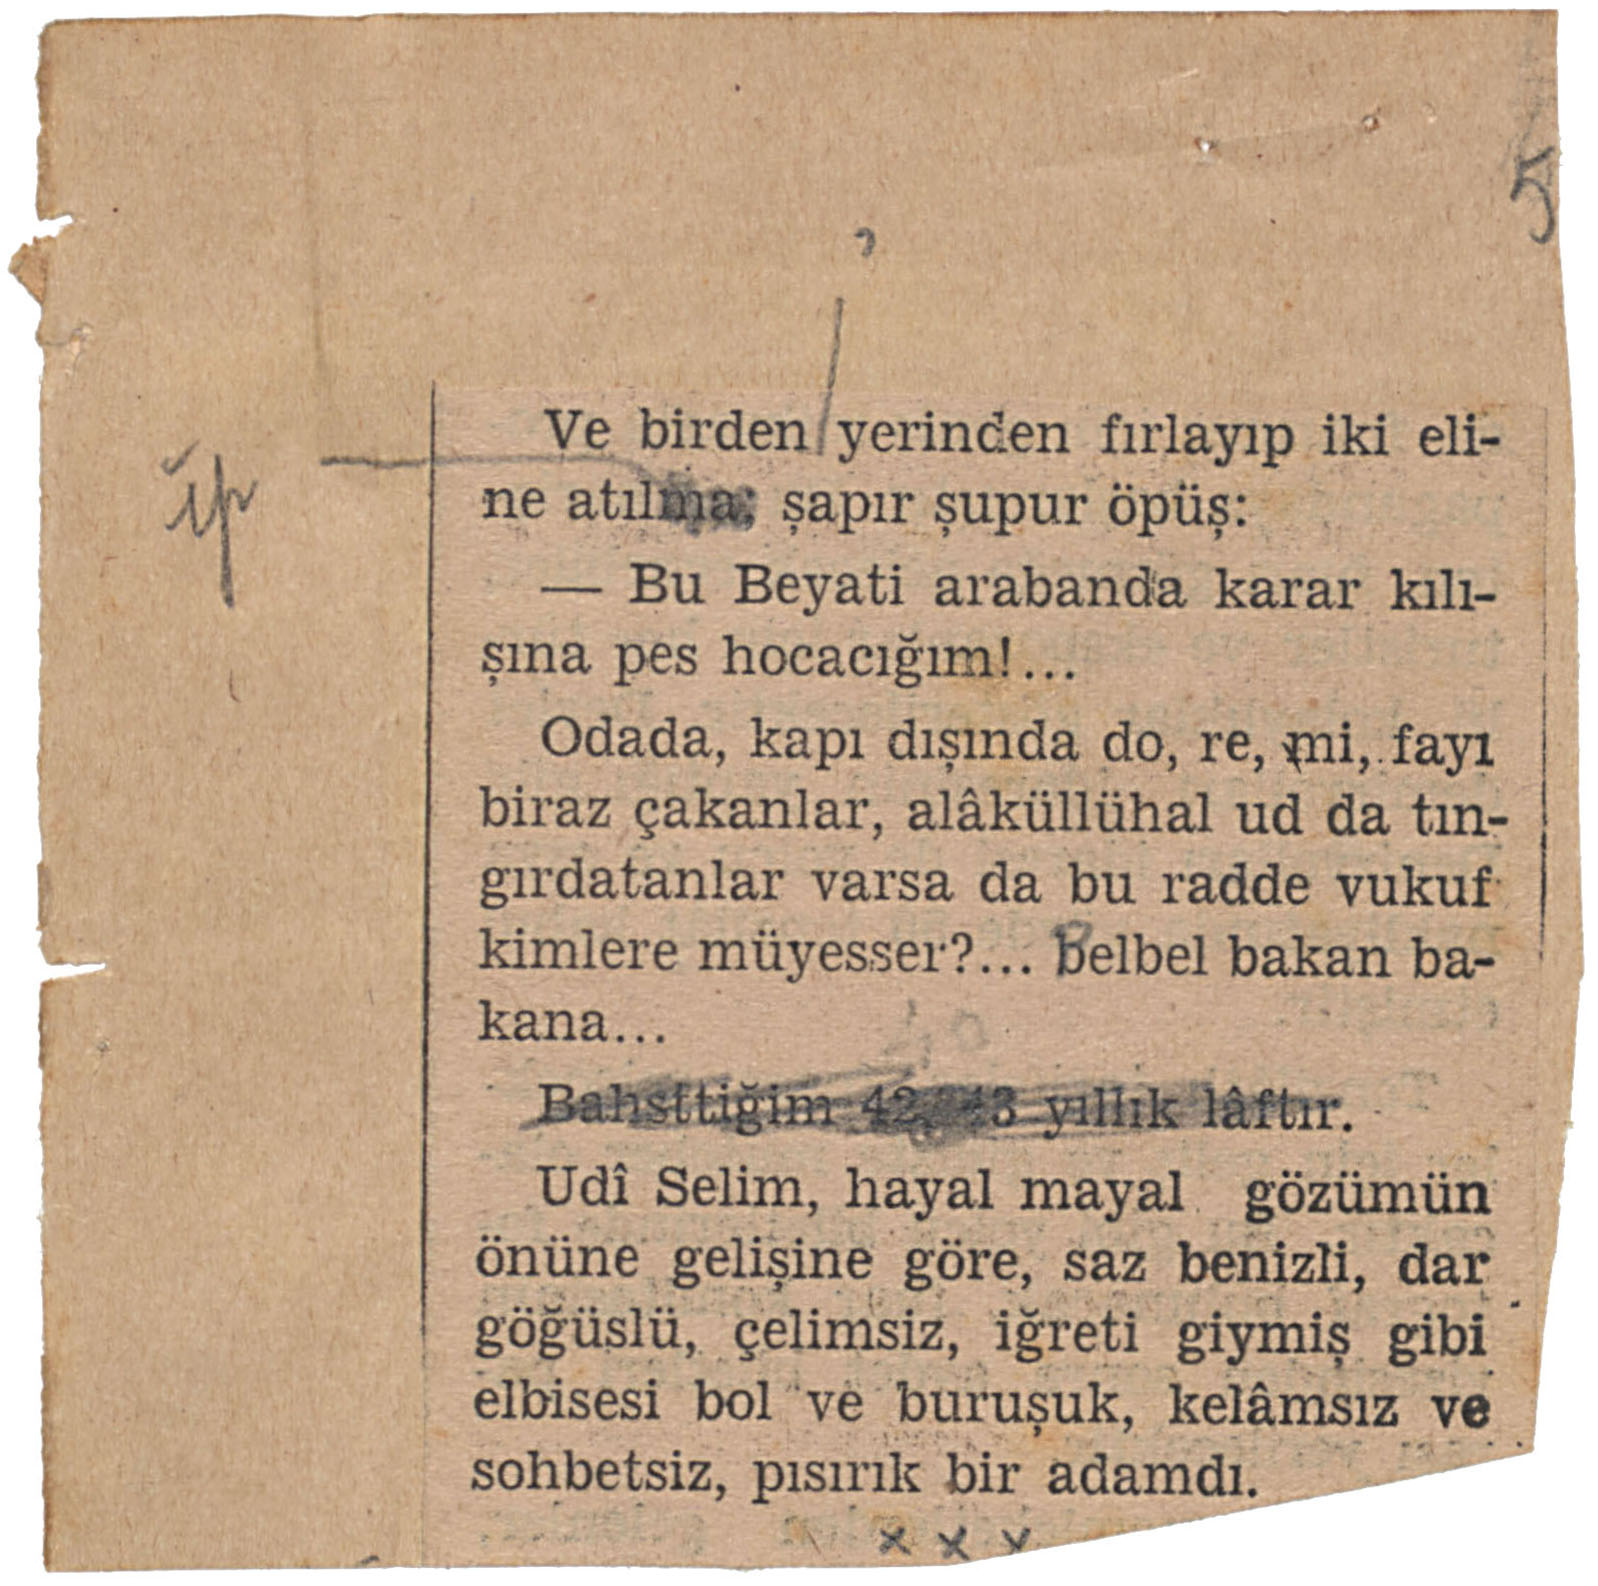 5
,
Ve birden yerinden fırlayıp iki eli-
ıp
ne atılma; şapır şupur öpüş:
— Bu Beyati arabanda karar kılı-
şına pes hocacığım!...
Odada, kapı dışında do, re, mi, fayı
biraz çakanlar, alâküllühal ud da tın-
gırdatanlar varsa da bu radde vukuf
kimlere müyesser?... Belbel bakan ba-
kana...
Bahsttiğim 42, 43 yıllık lâftır.
Udî Selim, hayal mayal gözümün
önüne gelişine göre, saz benizli, dar
göğüslü, çelimsiz, iğreti giymiş gibi
elbisesi bol ve buruşuk, kelâmsız ve
sohbetsiz, pısırık bir adamdı.
x x x